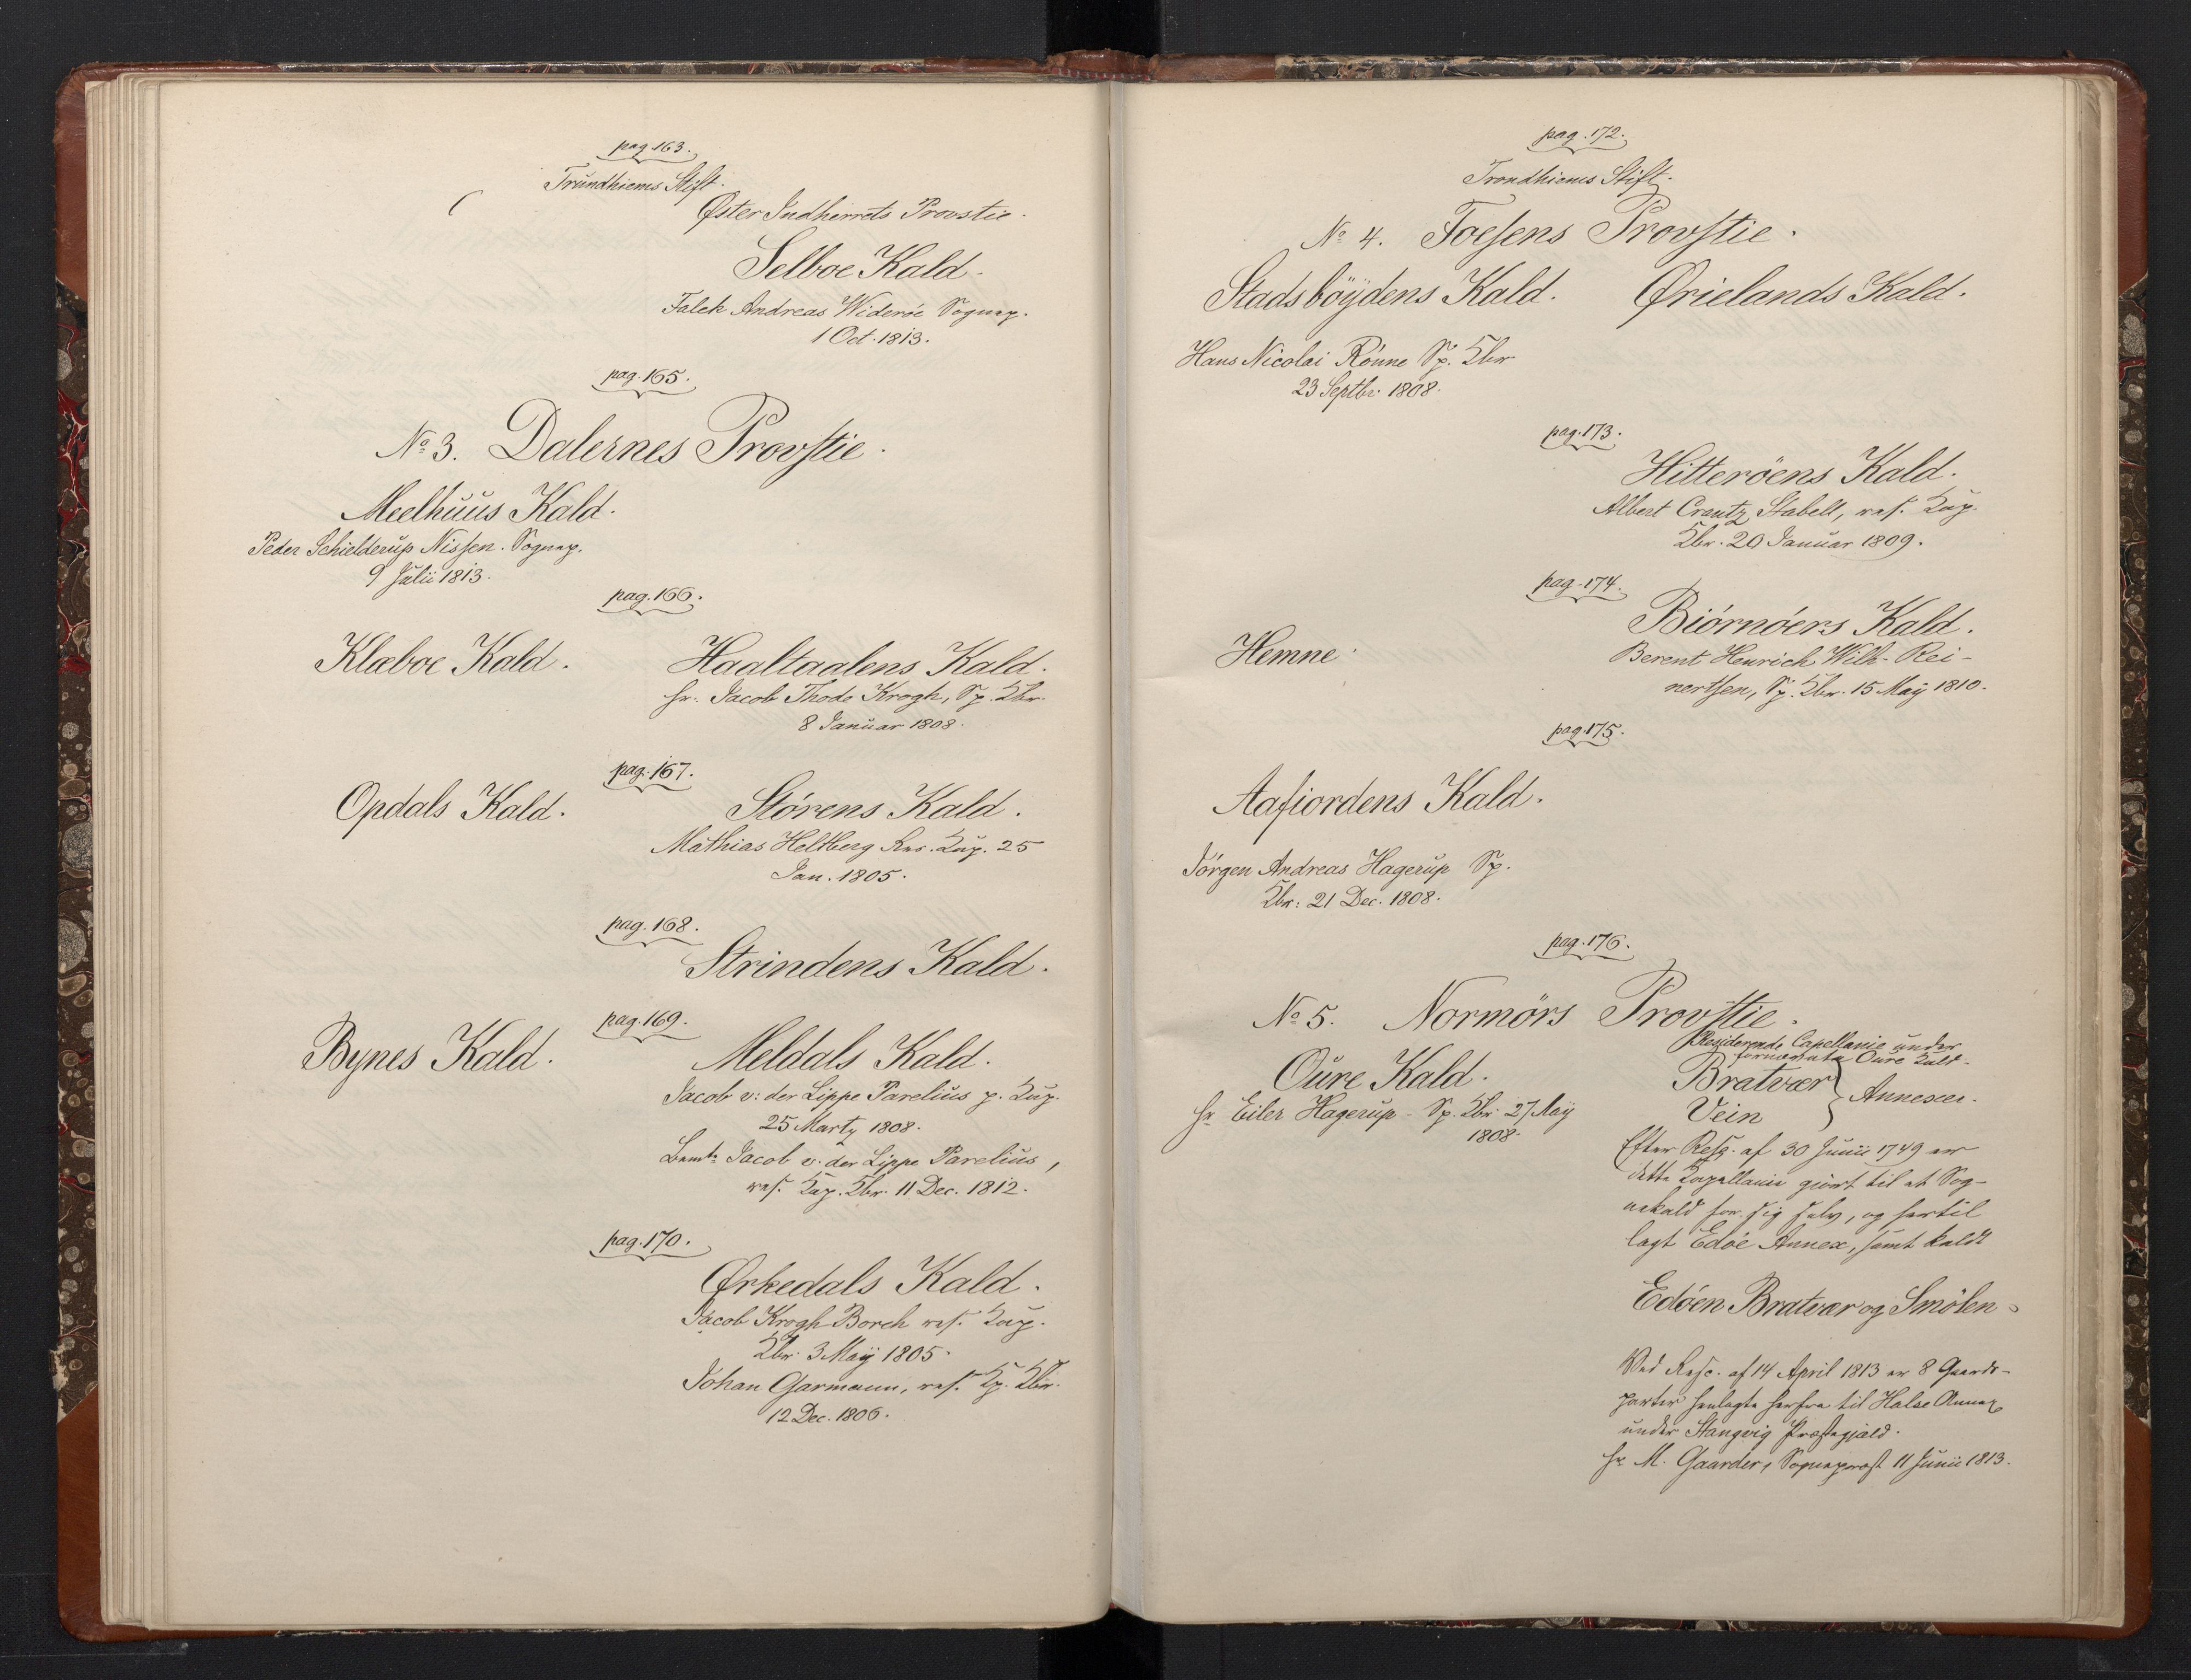 pag. 163.
Trundhiems Stift.
Øster Indherrets Provstie.
Selboe Kald.
Falck Andreas Widerøe Sognep.
1 Oct. 1813.
pag. 165.
No 3. Dalernes Provstie.
Meelhuus Kald.
Peder Schielderup Nissen. Sognep.
9 Julii 1813.
pag. 166.
Klæboe Kald.
Haaltaalens Kald.
Hr. Jacob Thode Krogh, Sp. Kbr.
8 Januar 1808.
pag. 167.
Opdals Kald.
Störens Kald.
Mathias Heltberg Res. Cap. 25
Jan. 1805.
pag. 168.
Strindens Kald.
pag. 169.
Bynes Kald.
Meldals Kald.
Jacob v: der Lippe Parelius p. Cap.
25 Marty 1808.
Bemte Jacob v. der Lippe Parelius,
res. Cap. Kbr. 11 Dec. 1812.
pag. 170.
Ørkedals Kald.
Jacob Krogh Borch res. Cap.
Kbr. 3 Maij 1805.
Johan Garmann, res. Cp. Kbr.
12 Dec. 1806.
pag. 172.
Trondhiems Stift.
No 4. Foesens Provstie.
Stadsböydens Kald.
Ørielands Kald.
Hans Nicolai Rönne Sp. Kbr
23 Septbr. 1808.
pag. 173.
Hitteröens Kald.
Albert Crantz Stabell, res. Cap.
Kbr. 20 Januar 1809.
pag. 174.
Hemne.
Biörnöers Kald.
Berent Henrich Wilh. Rei-
nertsen, Sp. Kbr. 15 Maij 1810.
pag. 175.
Aafiordens Kald.
Jörgen Andreas Hagerup Sp.
Kbr: 21 Dec. 1808.
pag. 176.
No 5. Normörs Provstie.
Residerende Capellanie under
fornævnte Oure Kald.
Oure Kald.
Hr Eiler Hagerup - Sp. Kbr. 27 Maij
1808.
Bratvær
Vein
Annexer.
Efter Resc. af 30 Junii 1749 er
dette Capellanie giort til et Sog-
nekald for sig selv, og hertil
lagt Edöe Annex, samt kaldt
Edöen Bratvær og Smölen.
Ved Resc. af 14 April 1813 er 8 Gaards-
parter henlagte herfra til Halse Annex
under Stangvig Præstegjæld.
Hr M. Gaarder, Sogneprest 11 Junii 1813.